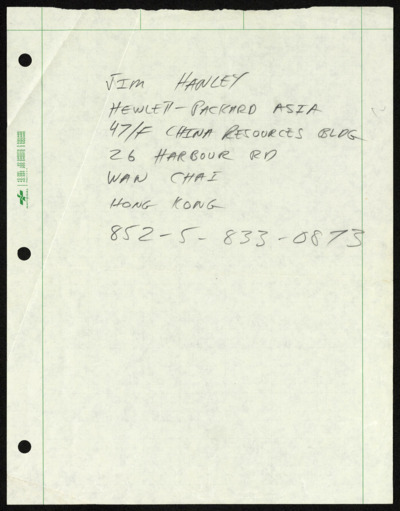 JIM HANLEY
HEWLETT-PACKARD ASIA
47/F CHINA RESOURCES BLDG
26 HARBOUR RD
WAN CHAI
HONG KONG
852-5-833-0873